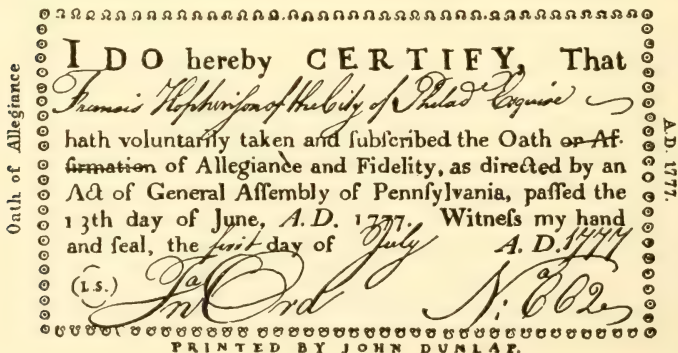 I DO hereby CERTIFY, That
Francis Hopkinson of the City of Philad.ᵃ Esquire
hath voluntarily taken and ſubſcribed the Oath or Af-
firmation of Allegiance and Fidelity, as directed by an
Act of General Aſſembly of Pennſylvania, paſſed the
13th day of June, A.D. 1777. Witneſs my hand
and ſeal, the first day of July A.D. 1777
(L.S.) Jnᵒ Ord Nᵒ:
PRINTED BY JOHN DUNLAP.
Oath of Allegiance
A.D. 1777.